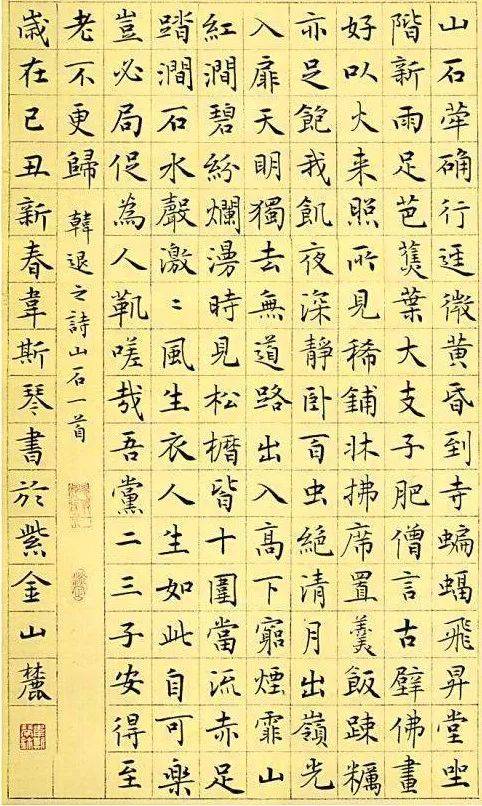 山石荦确行逕微黄昏到寺蝙蝠飛昇堂坐
階新雨足芭蕉葉大支子肥僧言古壁佛畫
好以火来照所見稀鋪牀拂席置羹飯踈糲
亦足飽我飢夜深靜卧百虫絶清月出嶺光
入扉天明獨去無道路出入高下窮煙霏山
紅澗碧紛爛漫時見松櫪皆十圍當流赤足
踏澗石水聲激〻風生衣人生如此自可樂
豈必局促為人鞿嗟哉吾黨二三子安得至
老不更歸
韓退之詩山石一首
歲在己丑新春韋斯琴書於紫金山麓